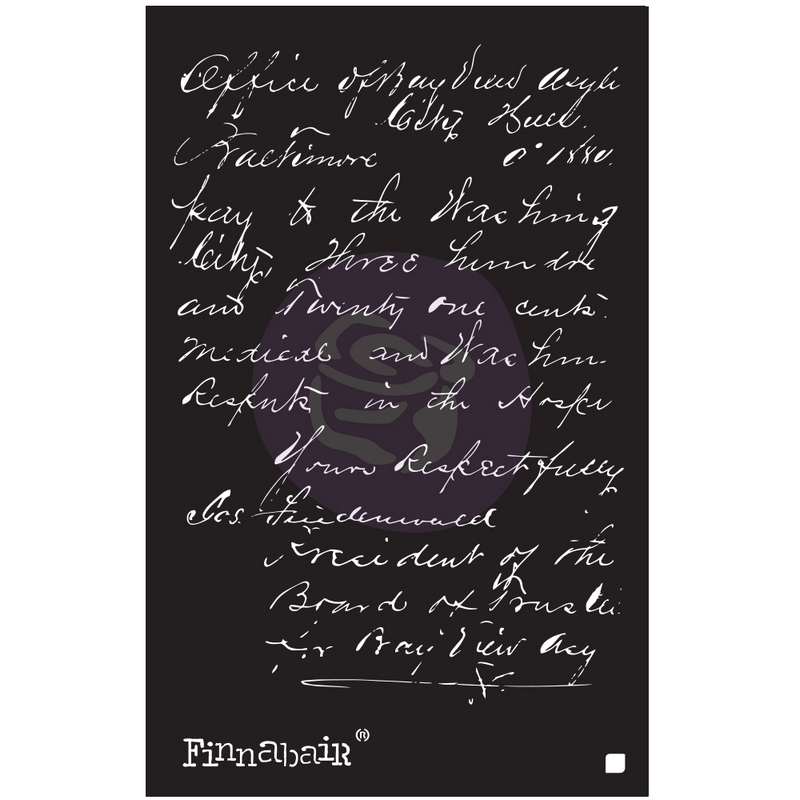 Office of Bay View Asyl
City Hall.
Baltimore 1880.
pay to the Washing
City, Three hundre
and Twenty one cents.
Medical and Washin
in the Hospi
Yours Respectfully
Friedenwald
President of the
Board of Trustee
for Bay View Asy
Finnabair®